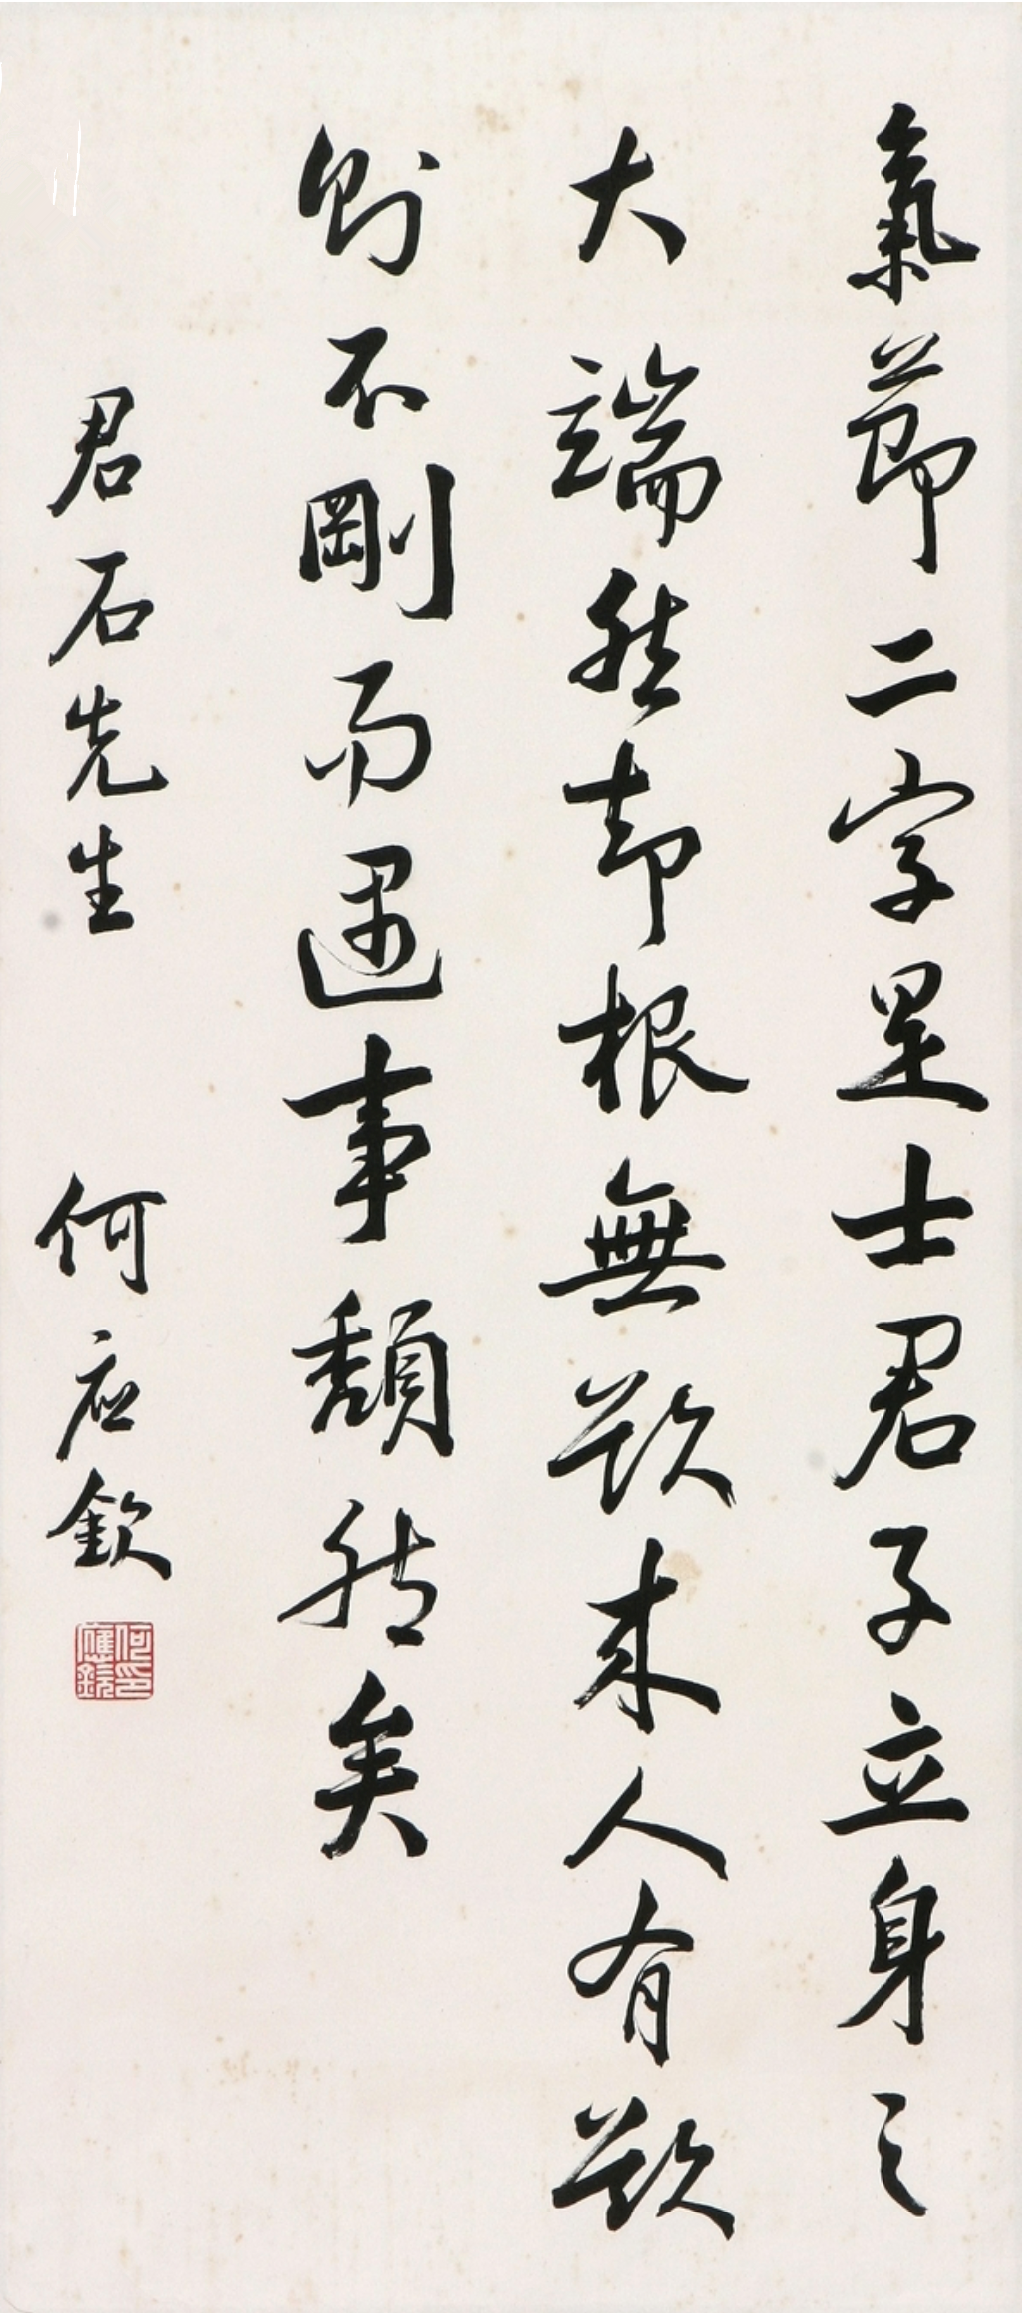 氣節二字是士君子立身之
大端然却根無欲来人有欲
則不剛而遇事頹然矣
君石先生
何应欽
何應欽印